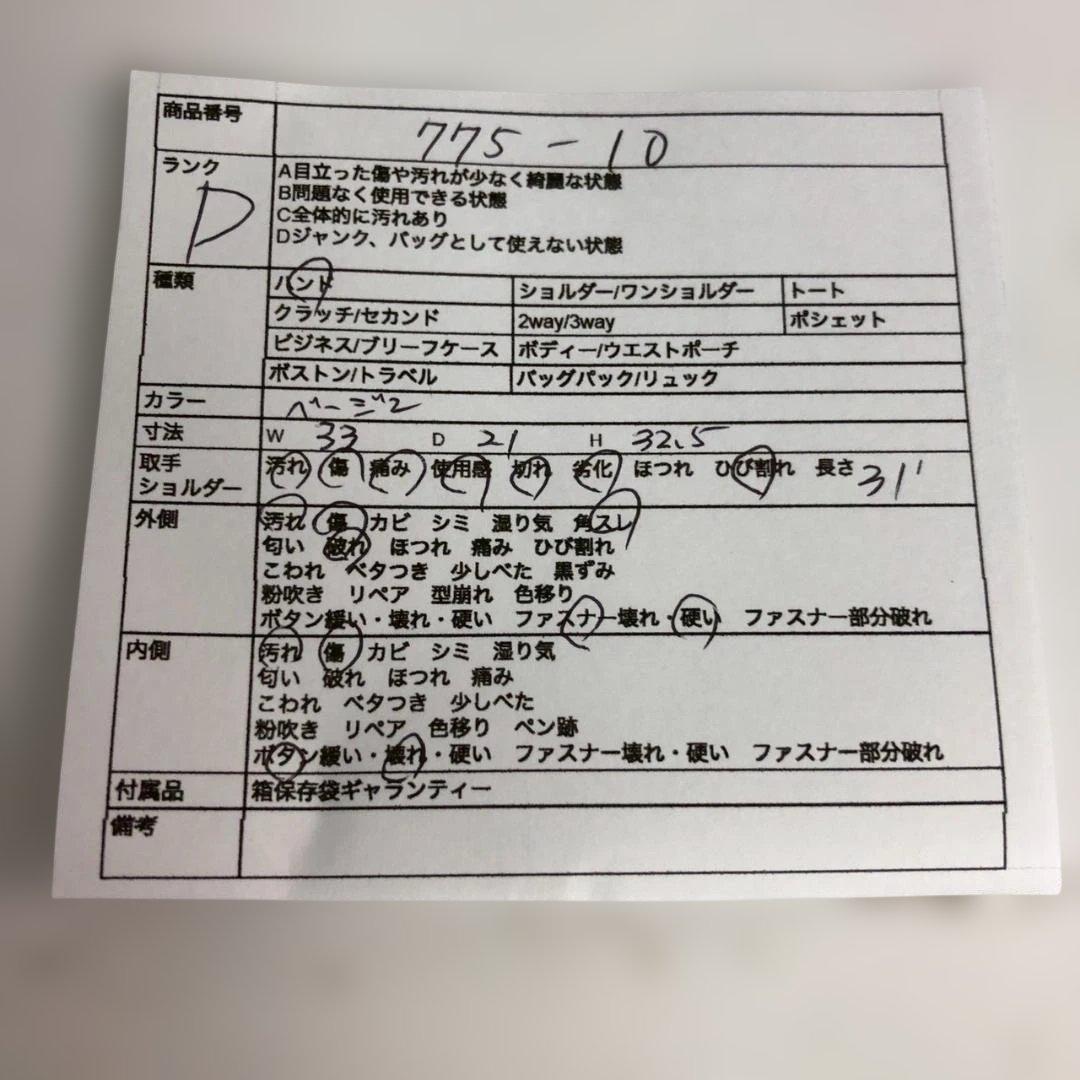 商品番号 775-10
ランク D
A目立った傷や汚れが少なく綺麗な状態
B問題なく使用できる状態
C全体的に汚れあり
Dジャンク、バッグとして使えない状態
種類 ハンド ショルダー/ワンショルダー トート
クラッチ/セカンド 2way/3way ポシェット
ビジネス/ブリーフケース ボディー/ウエストポーチ
ボストン/トラベル バッグパック/リュック
カラー ベージュ
寸法 W 33 D 21 H 32.5
取手 汚れ 傷 痛み 使用感 切れ 劣化 ほつれ ひび割れ 長さ 31
ショルダー
外側 汚れ 傷 カビ シミ 湿り気 角スレ
匂い 破れ ほつれ 痛み ひび割れ
こわれ ベタつき 少しべた 黒ずみ
粉吹き リペア 型崩れ 色移り
ボタン緩い・壊れ・硬い ファスナー壊れ・硬い ファスナー部分破れ
内側 汚れ 傷 カビ シミ 湿り気
匂い 破れ ほつれ 痛み
こわれ ベタつき 少しべた
粉吹き リペア 色移り ペン跡
ボタン緩い・壊れ・硬い ファスナー壊れ・硬い ファスナー部分破れ
付属品 箱保存袋ギャランティー
備考